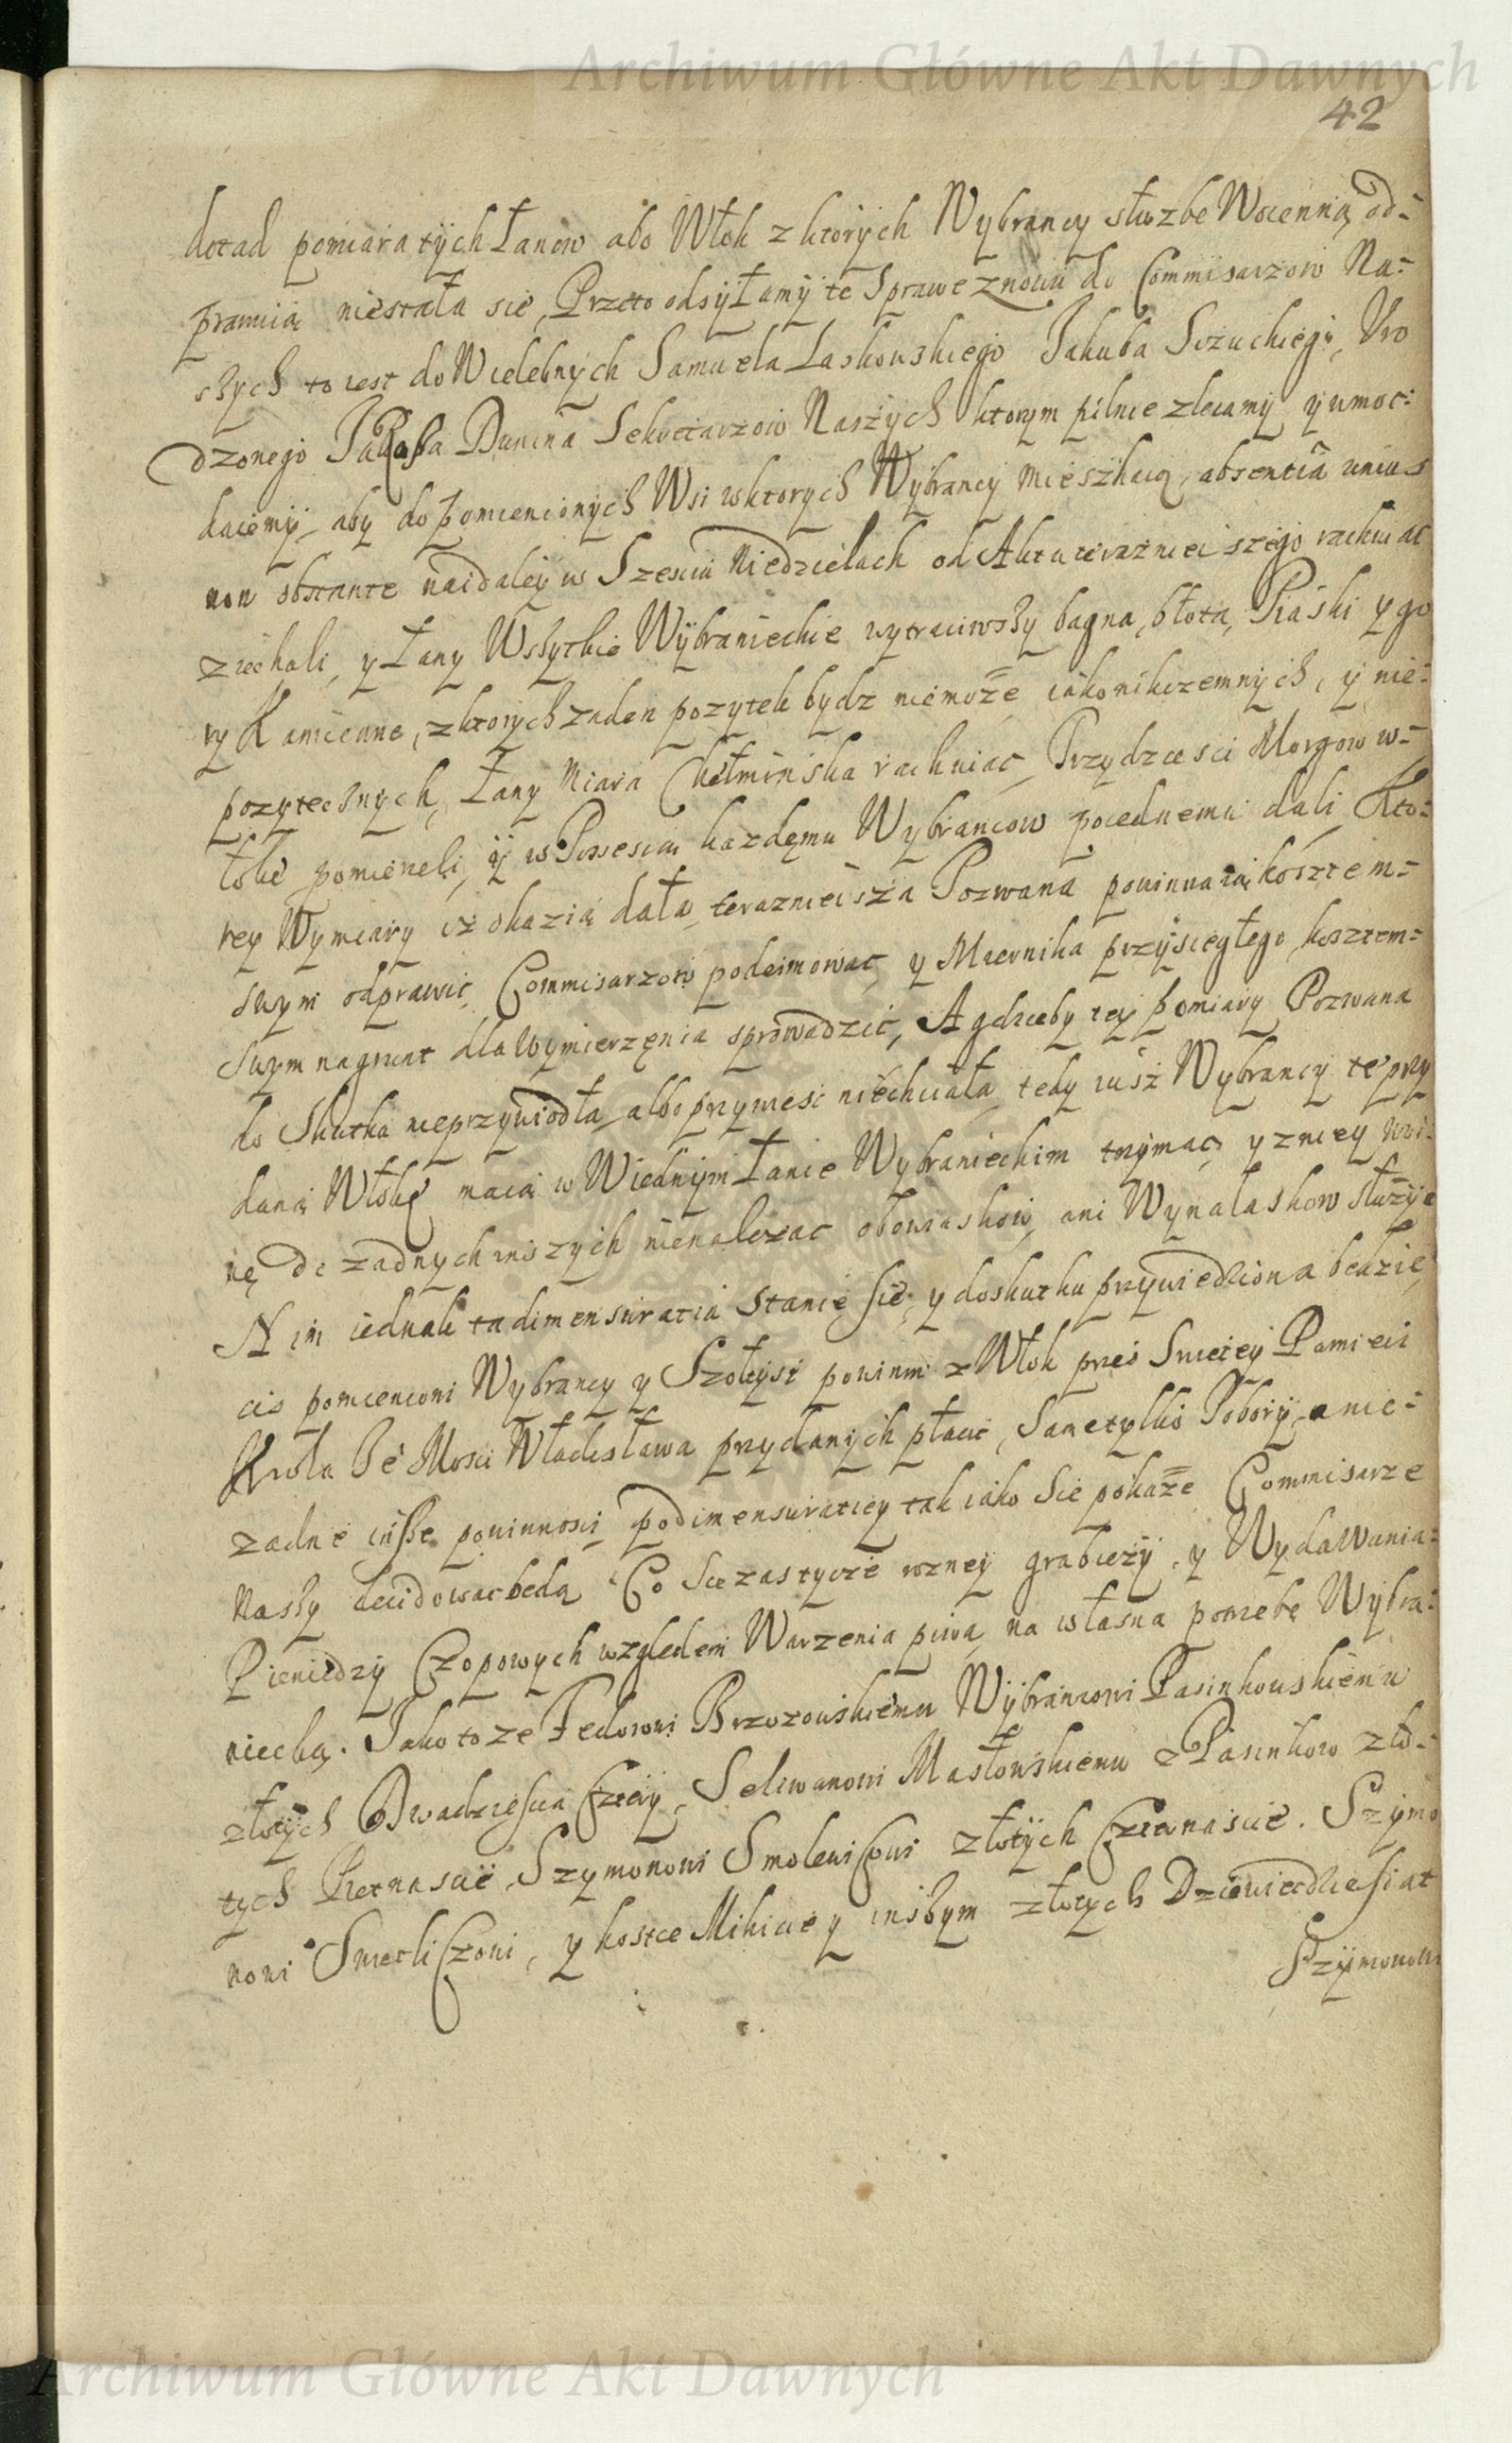 Archiwum Główne Akt Dawnych
42
dotad pomiara tych Łanow abo Włok z ktorych Wybrancy służbe Woienną od-
prawuią niestała sie, Przeto odsyłamy te Sprawe znowu do Commisarzow Na-
szych to iest do Wielebnych Samuela Laskowskiego Jakuba Suzuckiego, Vro
dzonego Jakuba Dunina Sekretarzow Naszych ktorym pilnie zlecamy y umoc-
kaiemy, aby do pomienionych Wsi w ktorych Wybrancy mieszkaią, absentia unius
non obstante naidaley w Szesciu Niedzielach od Aktu teraznieiszego rachuiac
ziechali, y Łany Wszytkie Wybranieckie wytraciwszy bagna, błota, Piaski y go
ry Kamienne, z ktorych zaden pozytek bydz niemoże iako nikczemnych, y nie-
pozytecznych, Łany Miara Chełminska rachuiac, Trzydziesci Morgow w-
łoke pomierzeli, y w Possesią każdęmu Wybrancow poiednemu dali Kto-
rey Wymiary iż okazią dała, teraznieisza Pozwana powinna ią kosztem-
swym odprawic, Commisarzow podeimowac, y Miernika przysięgłego kosztem-
swym nagrunt dla Wymierzęnia sprowadzic, A gdzieby tey pomiary Pozwana
do Skutku nieprzywiodła, albo przywiesc niechciała, tedy iusz Wybrancy te przy
daną Włokę maią w Wiednym Łanie Wybranieckim trzymac, y zniey woi-
nę do zadnych inszych nienależąc obowiaskow, ani Wynalaskow służyc
Nim iednak ta dimensuratia Stanie sie, y doskutku przywiedziona bedzie,
cis pomienioni Wybrancy y Szołtysi powinni z Włok przes Swietey Pamieci
Krola Je Mosci Władisława przydanych płacic, Same tylko Pobory, a nie-
zadne insze powinnosci, po dimensuratiey tak iako Sie pokaże Commisarze
Naszy decidowac bedą. Co Sie zas tycze rozney grabieży, y Wydawania-
Pieniedzy Czopowych wzgledem Warzenia piwa na własna potrzebę Wybra-
niecką. Jako to ze Fedorowi Brzozowskiemu Wybrancowi Pasinkowskiemu
złotych Dwadziescia Cztery, Seliwanowi Masłowskiemu z Pasinkow zło-
tych Pietnascie, Szymonowi Smolewiczowi złotych Czternascie. Szymo
nowi Swietliczowi, y kostce Mikicie y inszym złotych Dziewiecdziesiat
Szymonowi
Archiwum Główne Akt Dawnych